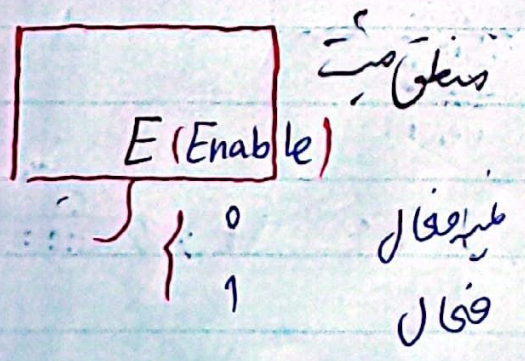 منطق مثبت
E (Enable)
0 غیرفعال
1 فعال